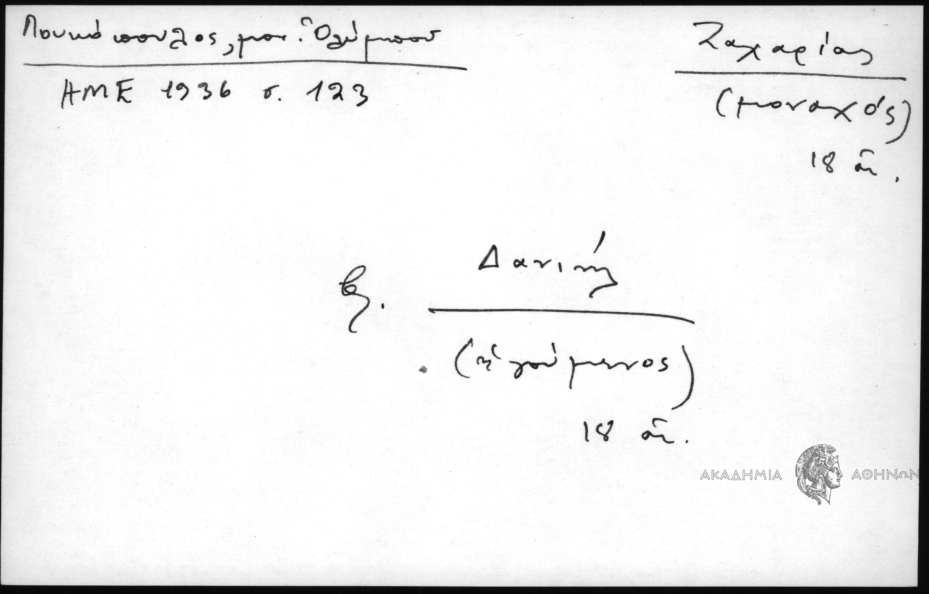 Λουκόπουλος, μον. Ὀλύμπου
ΗΜΕ 1936 σ. 123
Ζαχαρίας
(μοναχός)
18 αἰ.
βλ. Δανιήλ
(ἡγούμενος)
18 αἰ.
ΑΚΑΔΗΜΙΑ ΑΘΗΝΩΝ